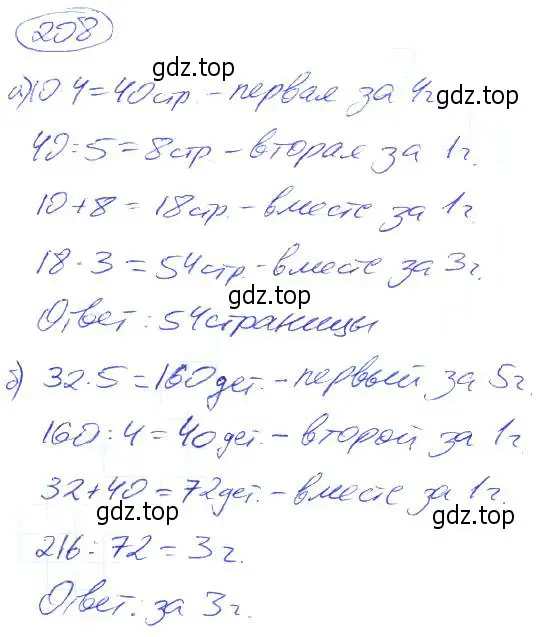 208
gdz.top
а) 10·4=40стр.-первая за 4г
40:5=8стр-вторая за 1г.
10+8=18стр.-вместе за 1г.
gdz.top
18·3=54стр.-вместе за 3г.
gdz.top
Ответ: 54страницы
б) 32·5=160дет.-первый за 5г.
160:4=40дет.-второй за 1г.
gdz.top
32+40=72дет.-вместе за 1г.
gdz.top
gdz.top
216:72=3г.
Ответ: за 3г.